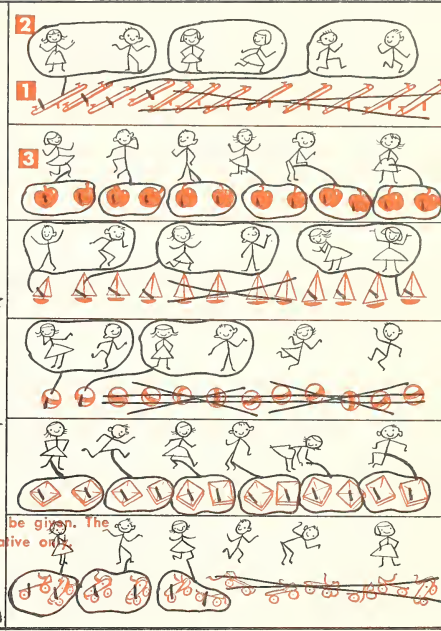 2
1
3
be given. The
ative only.